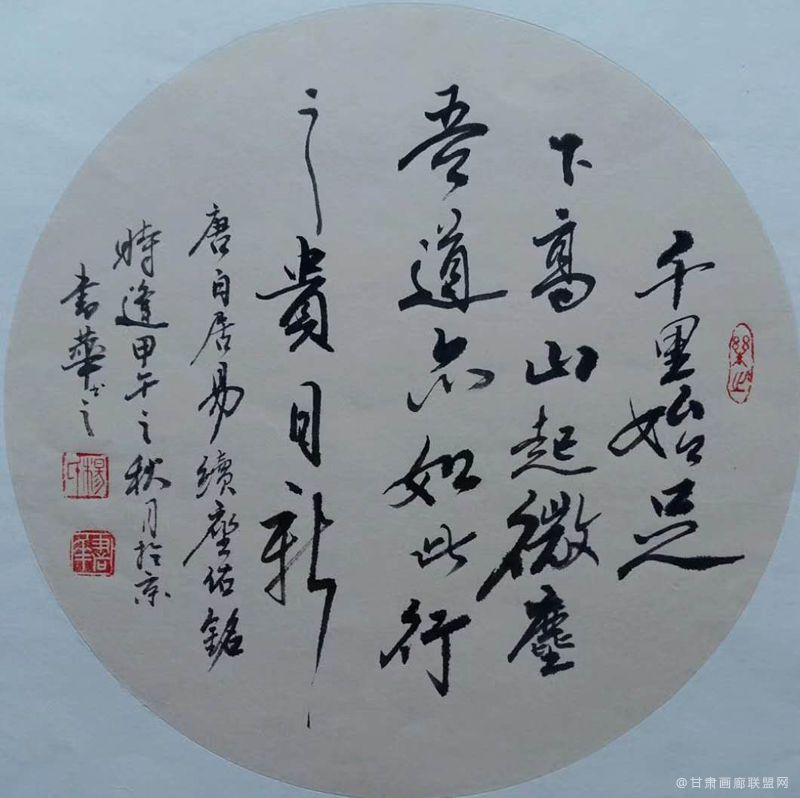 千里始足
下高山起微塵
吾道亦如此行
之貴日新
唐白居易續座佑銘
時逢甲午之秋月於京
書華书之
楊
書華
@甘肃画廊联盟网